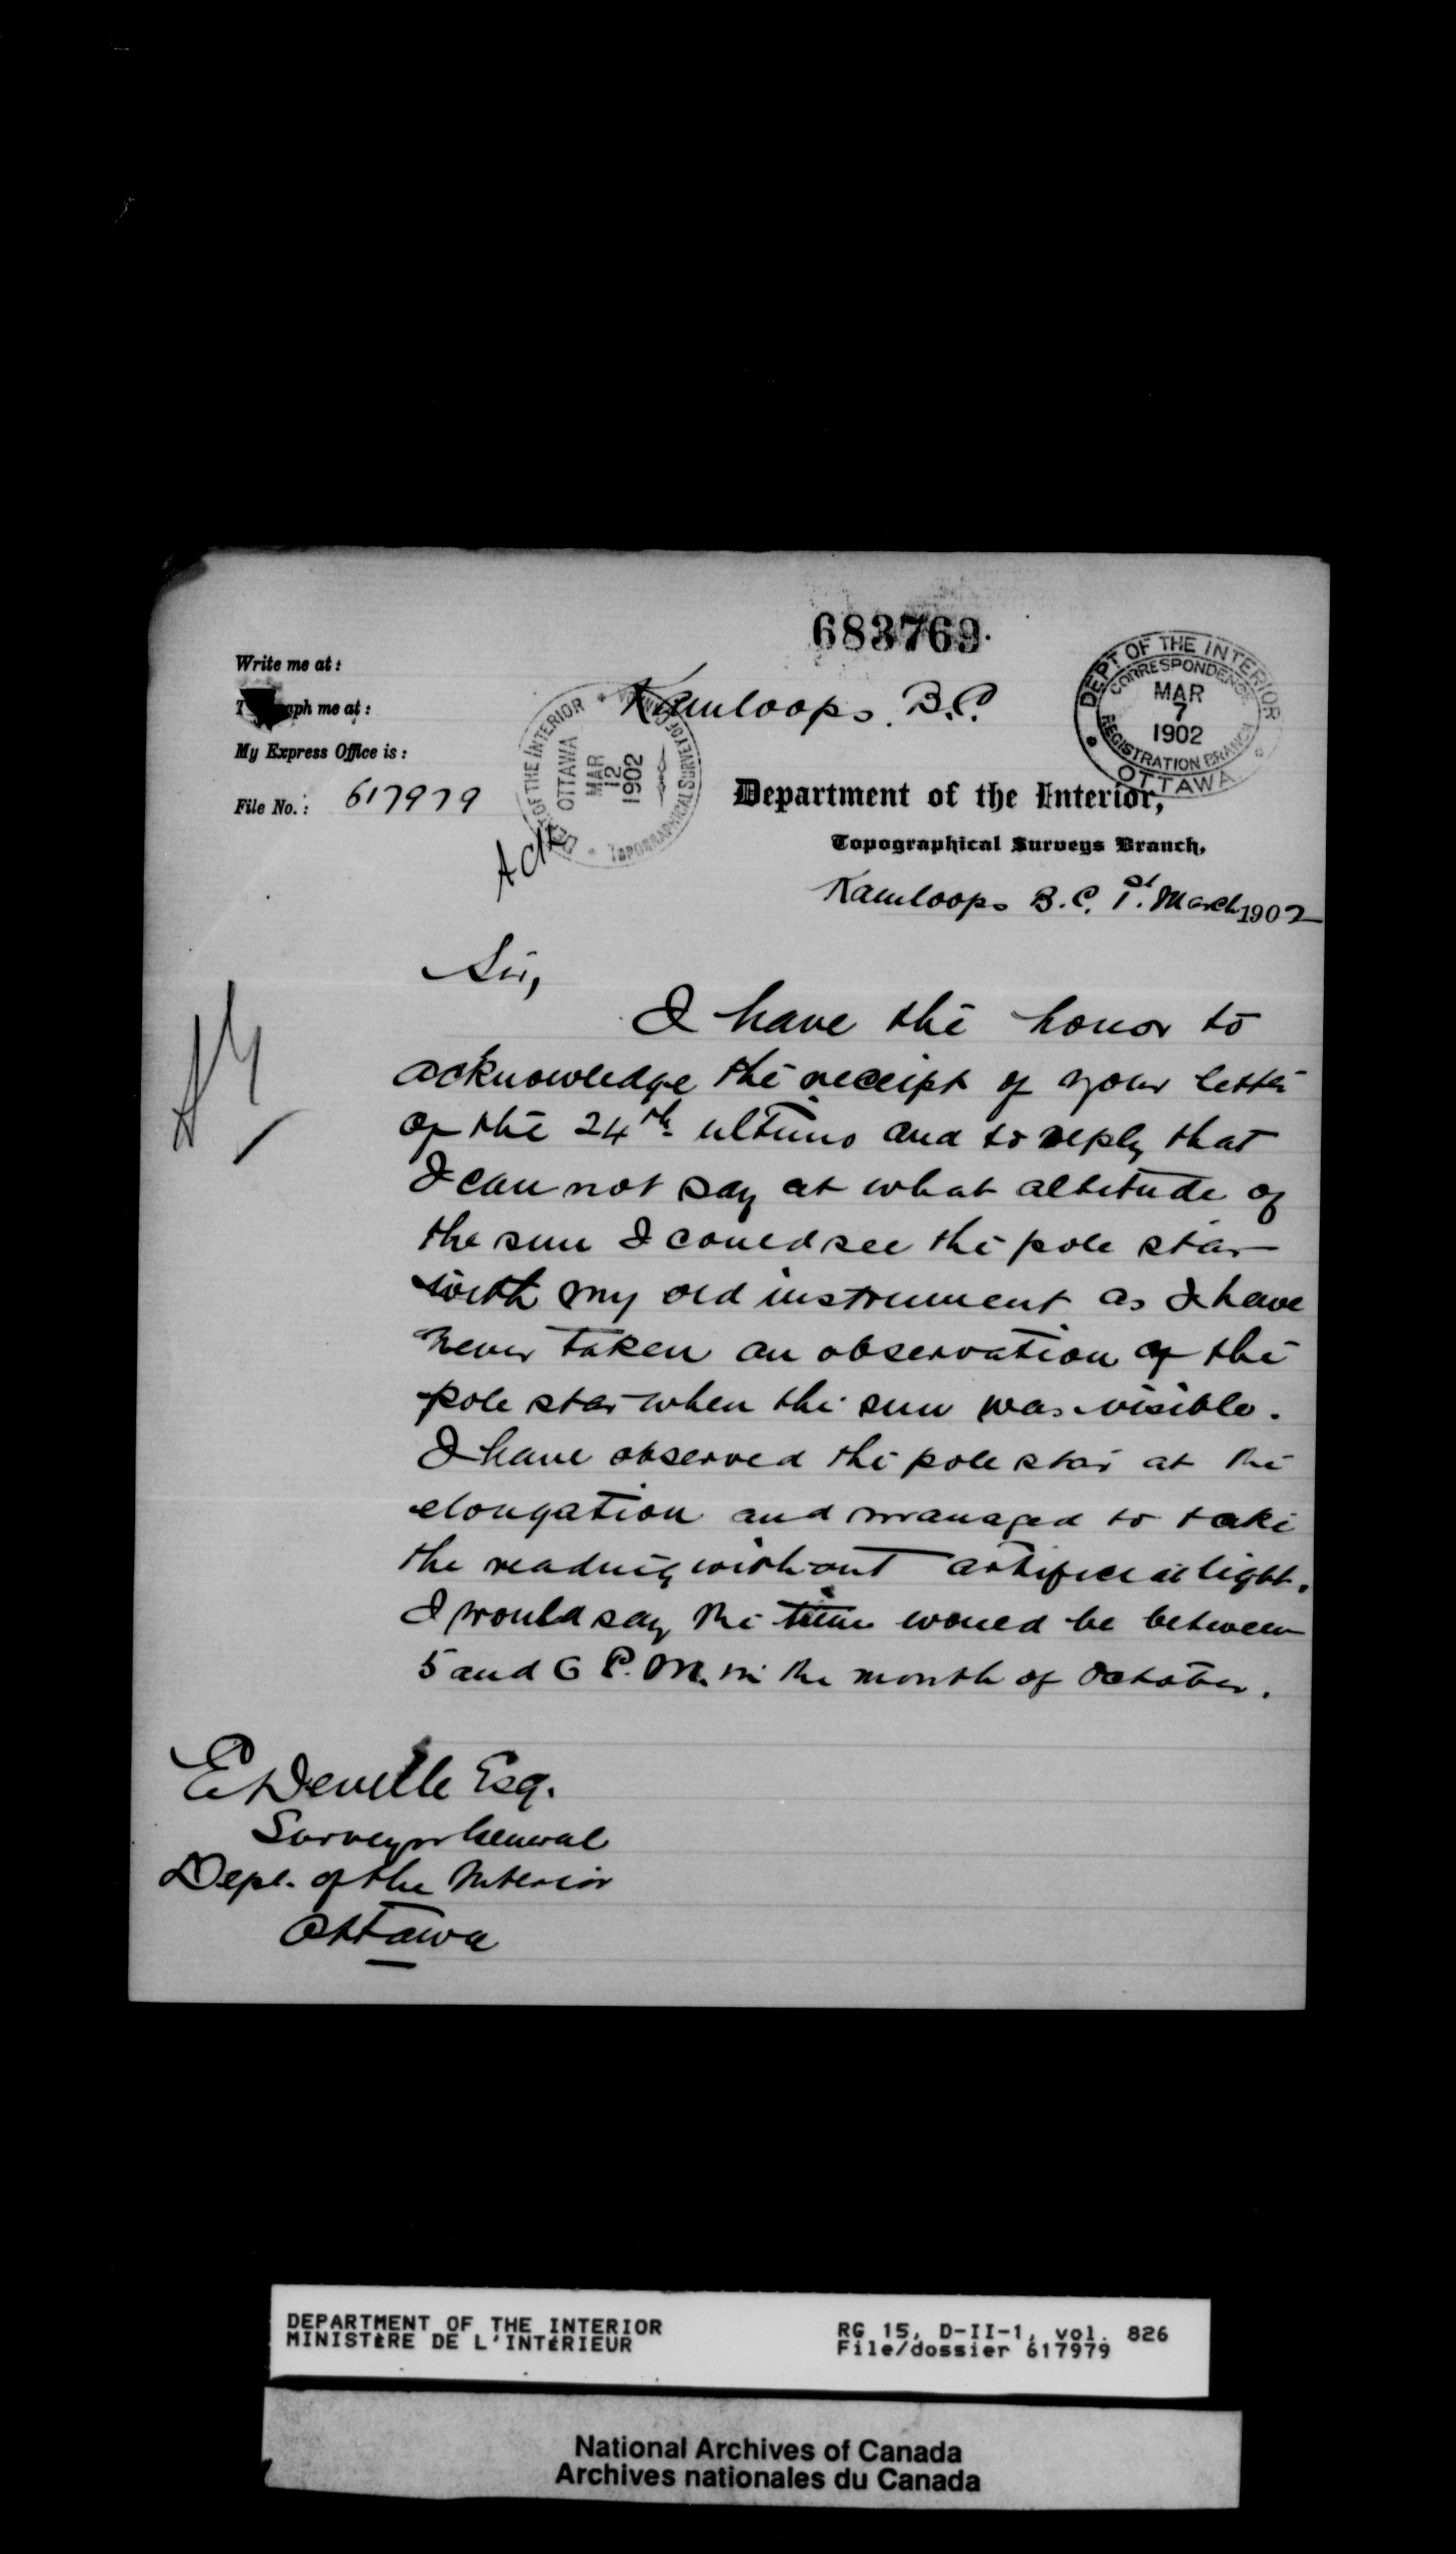 683769.
Write me at:
T aph me at:
My Express Office is:
File No.: 617979
Kamloops. B.C.
DEPT OF THE INTERIOR
CORRESPONDENCE
MAR
7
1902
REGISTRATION BRANCH
OTTAWA
DEPT OF THE INTERIOR
OTTAWA
MAR
12
1902
TOPOGRAPHICAL SURVEYS
Ack
Department of the Interior,
Topographical Surveys Branch,
Kamloops B.C. 1st. March 1902
Sir,
I have the honor to
acknowledge the receipt of your letter
of the 24th ultimo and to reply that
I can not say at what altitude of
the sun I could see the pole star
with my old instrument as I have
never taken an observation of the
pole star when the sun was visible.
I have observed the pole star at the
elongation and managed to take
the reading without artificial light.
I would say the time would be between
5 and 6 P.M. in the month of October.
E Deville Esq.
Surveyor General
Dept. of the Interior
Ottawa
DEPARTMENT OF THE INTERIOR
MINISTÈRE DE L'INTÉRIEUR
RG 15, D-II-1, vol. 826
File/dossier 617979
National Archives of Canada
Archives nationales du Canada